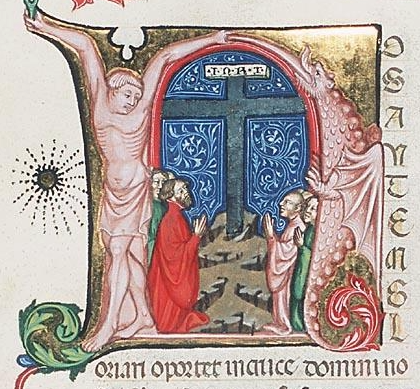 I N R I
OSAUTEMGL
oriari oportet in cruce domini no